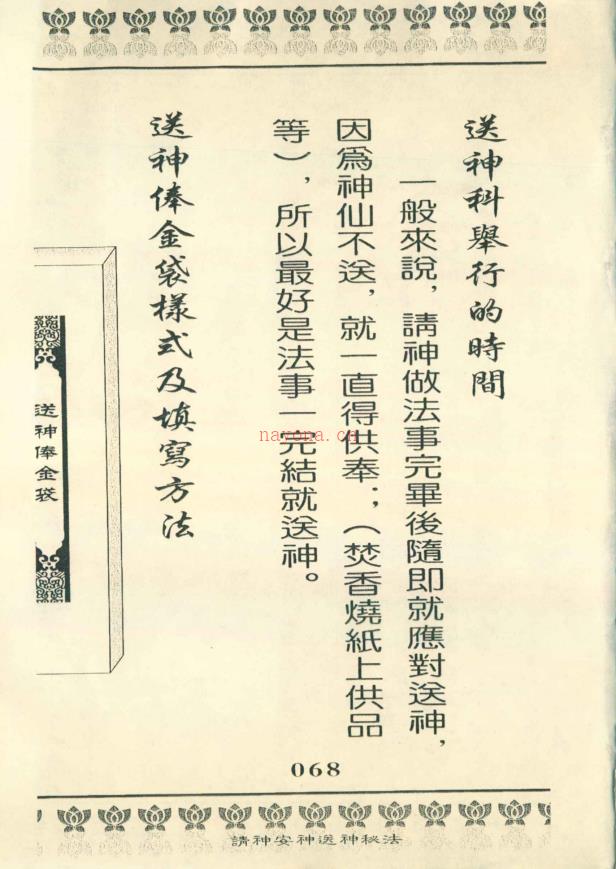 送神科舉行的時間
一般來說，請神做法事完畢後隨即就應對送神，
因爲神仙不送，就一直得供奉；（焚香燒紙上供品
等），所以最好是法事一完結就送神。
送神俸金袋樣式及填寫方法
送神俸金袋
nayona.cn
068
請神安神送神秘法